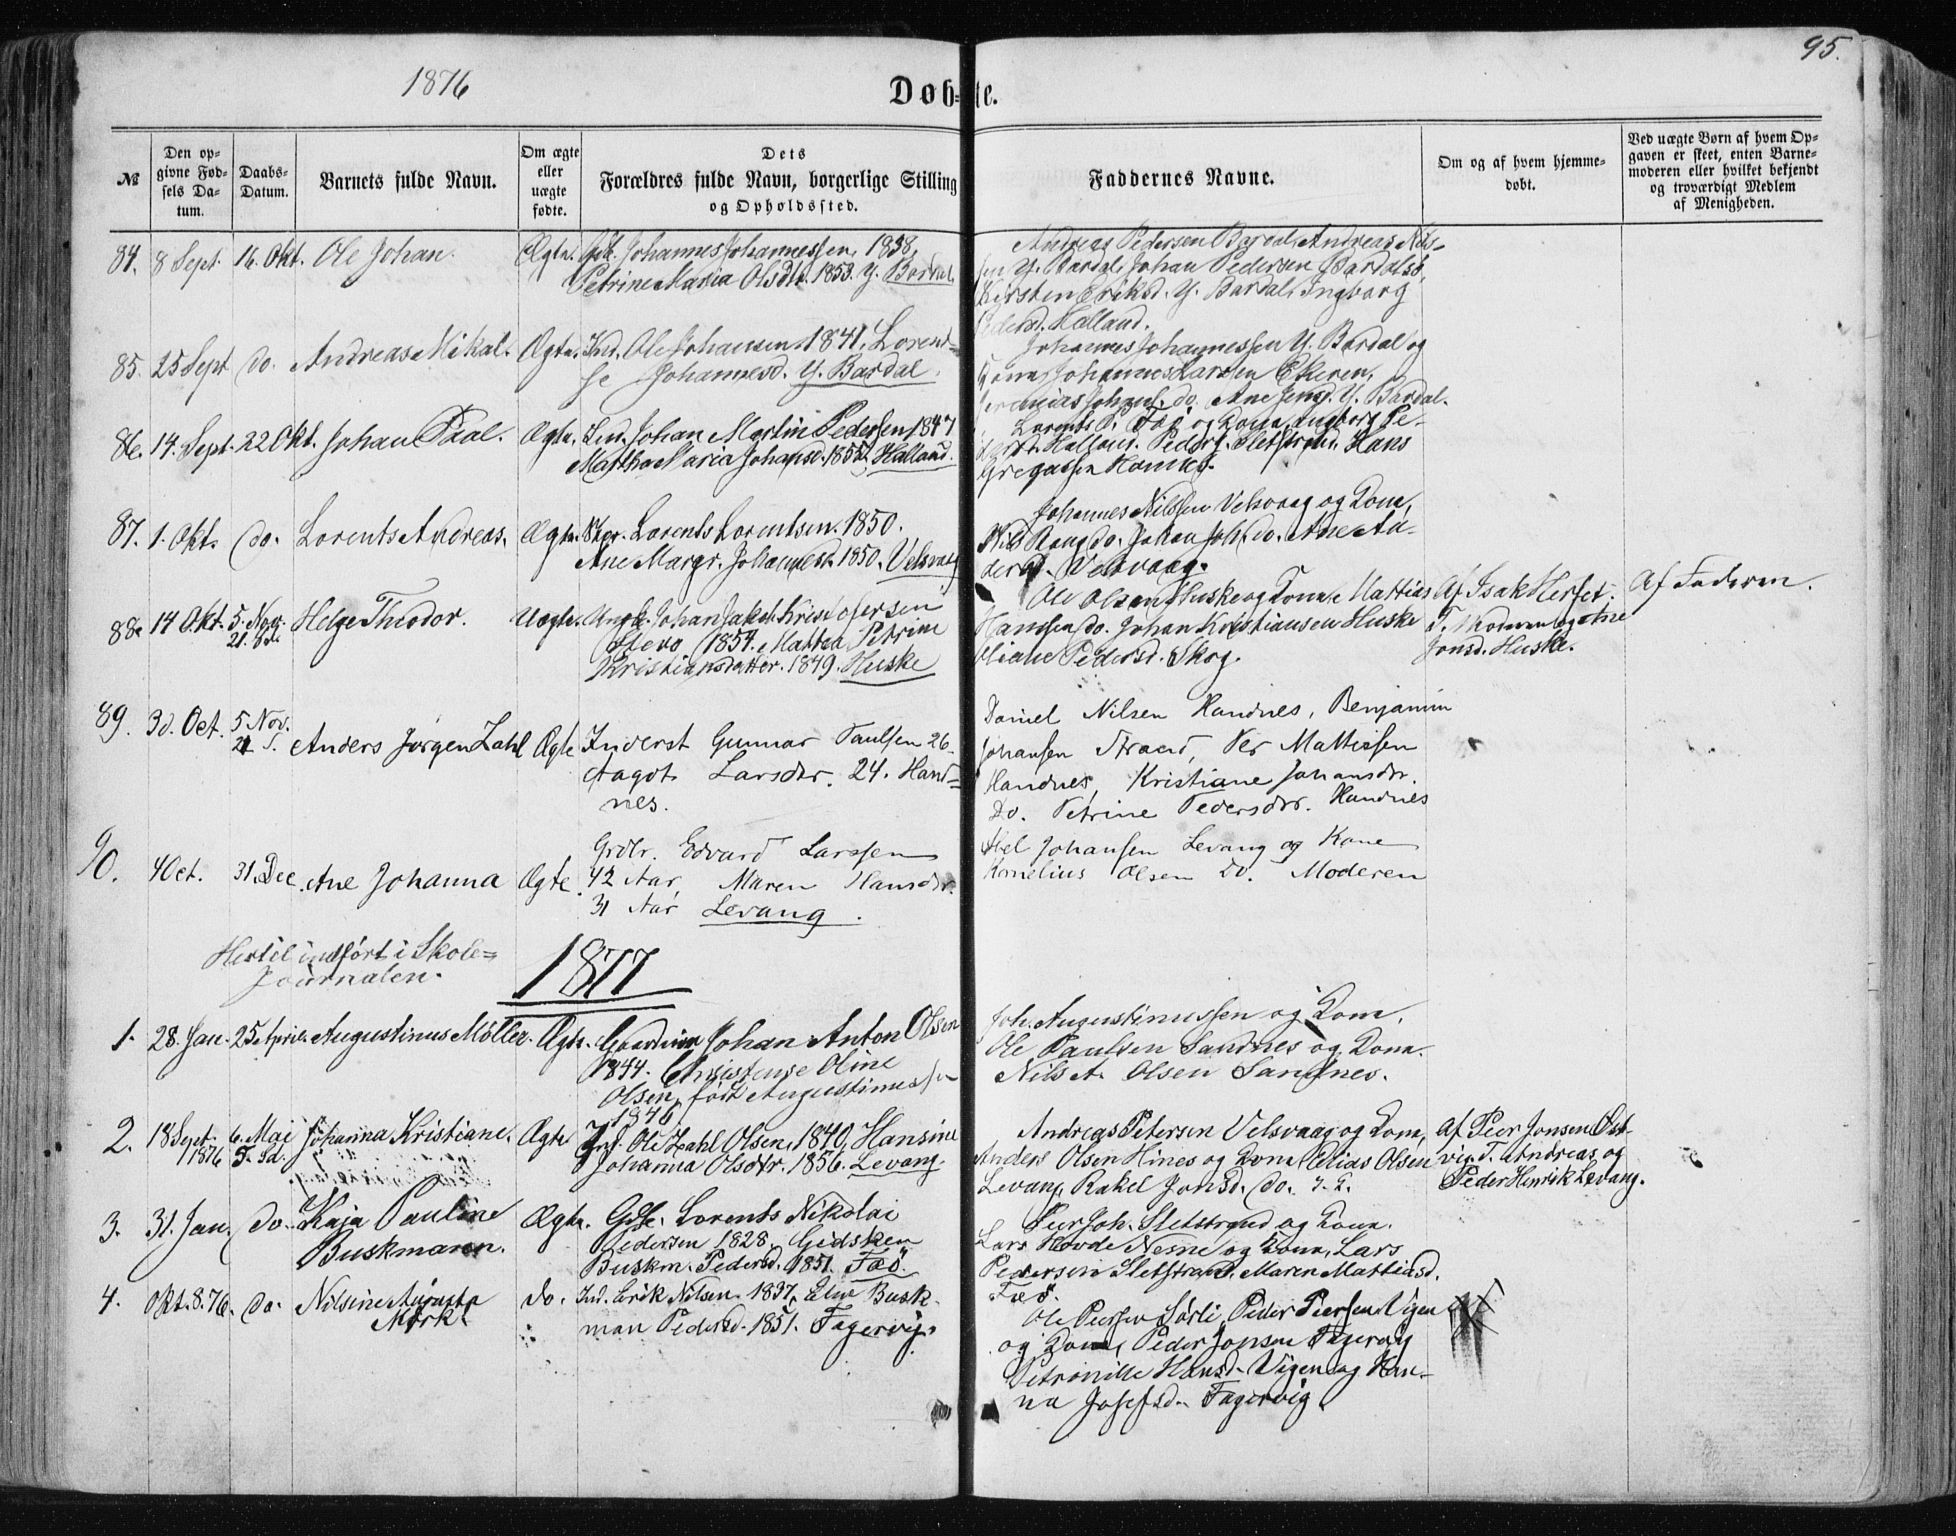 1876
Døb-te.
95.
№
Den opgivne Fødsels Datum.
Daabs-Datum.
Barnets fulde Navn.
Om ægte eller uægte fødte.
Dets Forældres fulde Navn, borgerlige Stilling og Opholdssted.
Faddernes Navne.
Om og af hvem hjemmedøbt.
Ved uægte Børn af hvem Opgaven er skeet, enten Barnemoderen eller hvilket bekjendt og troværdigt Medlem af Menigheden.
84. 8 Sept. 16. Okt. Ole Johan. Ægte. Johannes Johannessen, 1838,
Petrine Maria Olsdtr. 1853. Y. Bardal.
Andreas Pedersen Bardal, Andreas Nils-
sen Y. Bardal, Johan Pedersen Bardalsø,
Kirsten Eriksd. Y. Bardal, Ingborg
Pedersd. Halland.
85. 25 Sept do. Andreas Mikal. Ægte. Ind. Ole Johansen 1841, Lorent-
se Johannesd. Y. Bardal.
Johannes Johannessen Y. Bardal og
Kona, Johannes Larsen Ekeren,
do. Ane Jensd. Y. Bardal.
86. 14. Sept. 22 Okt. Johan Paal. Ægte. Ind. Johan Martin Pedersen 1847
Martha Maria Johansd. 1852 Halland.
Lorents P. Fæø og Kona, Ingborg Pe-
dersd. Halland. Peder J. Sletstrand. Hans
Gregussen Komnes.
87. 1. Okt. do. Lorents Andreas. Ægte. Lorents Lorentsen. 1850.
Ane Margr. Johannesd. 1850. Velsvaag
Johannes Nilssen Velsvaag og Kona,
Nils do. Johan Joh. do. Ane An-
dersd. Velsvaag.
88. 14 Okt. 5. Nov. Helge Theodor. Uægte. Ungk. Johan Jakob Kristofersen
21. Søn
1854. Martha Petrine
Kristiansdatter. 1849. Huske
Ole Olsen Huske og Kona, Mattias
Hanssen do. Johan Kristiansen Huske
Oliane Pedersd. Skog.
Af Isak Herset.
T. Moderen og Ane
Jonsd. Huske.
Af Faderen.
89. 30. Oct. 5. Nov. Anders Jørgen Zahl Ægte Inderst Gunnar Paulsen 26.
Aagot Larsdtr. 24. Hand-
nes.
Daniel Nilsen Handnes, Benjamin
Johansen Strand, Per Mattissen
Handnes, Kristiane Johansdtr.
Do. Petrine Pedersdtr. Handnes
90. 4 Oct. 31. Dec. Ane Johanna Ægte. Grdbr. Edvard Larssen
42 Aar, Maren Hansdtr.
31 Aar Levang.
Abel Johansen Levang og Kone
Kornelius Olsen Do. Moderen
Hertil indført i Skole-
Journalen.
1877
1. 28. Jan. 25 April. Augustinus Möller. Ægte. Gaardmn Johan Anton Olsen
1844. Christense Oline
Olsen, født Augustinussen
1846
Joh. Augustinussen og Kona,
Ole Paulsen Sandnes og Kona.
Nils A. Olsen Sandnes.
2. 18 Sept. 1876 6. Mai Johanna Kristiane. Ægte. Ind. Ole Zahl Olsen, 1840, Hansine
Johanna Olsdtr. 1856. Levang.
Andreas Petersen Velsvaag og Kona,
Anders Olsen Hines og Kona, Elias Olsen
Levang, Rakel Jonsd. do.
Af Peer Jonsen Øst-
vig. T. Andreas og
Peder Henrik Levang.
3. 31. Jan. do. Kaja Pauline Ægte. Lorents Nikolai
Buskmaren. Pedersen 1828. Gidsken
Buskm. Pedersd. 1851. Fæø.
Peer Joh. Sletstrand og Kona.
Lars Hovde Nesne og Kona, Lars
Pedersen Sletstrand. Maren Mattiasd.
Fæø.
4. Okt. 8. 76. do. Nilsine Augusta do. Ind. Erik Nilsen. 1837, Elen Busk-
Mörk. man Pedersd. 1851. Fagervig.
Ole Peersen Sörli, Peder Peersen Vigen
og Kona, Peder Jonsen Fagervig
Petronille Hansd. Vigen og Han-
na Josefsd. Fagervig.